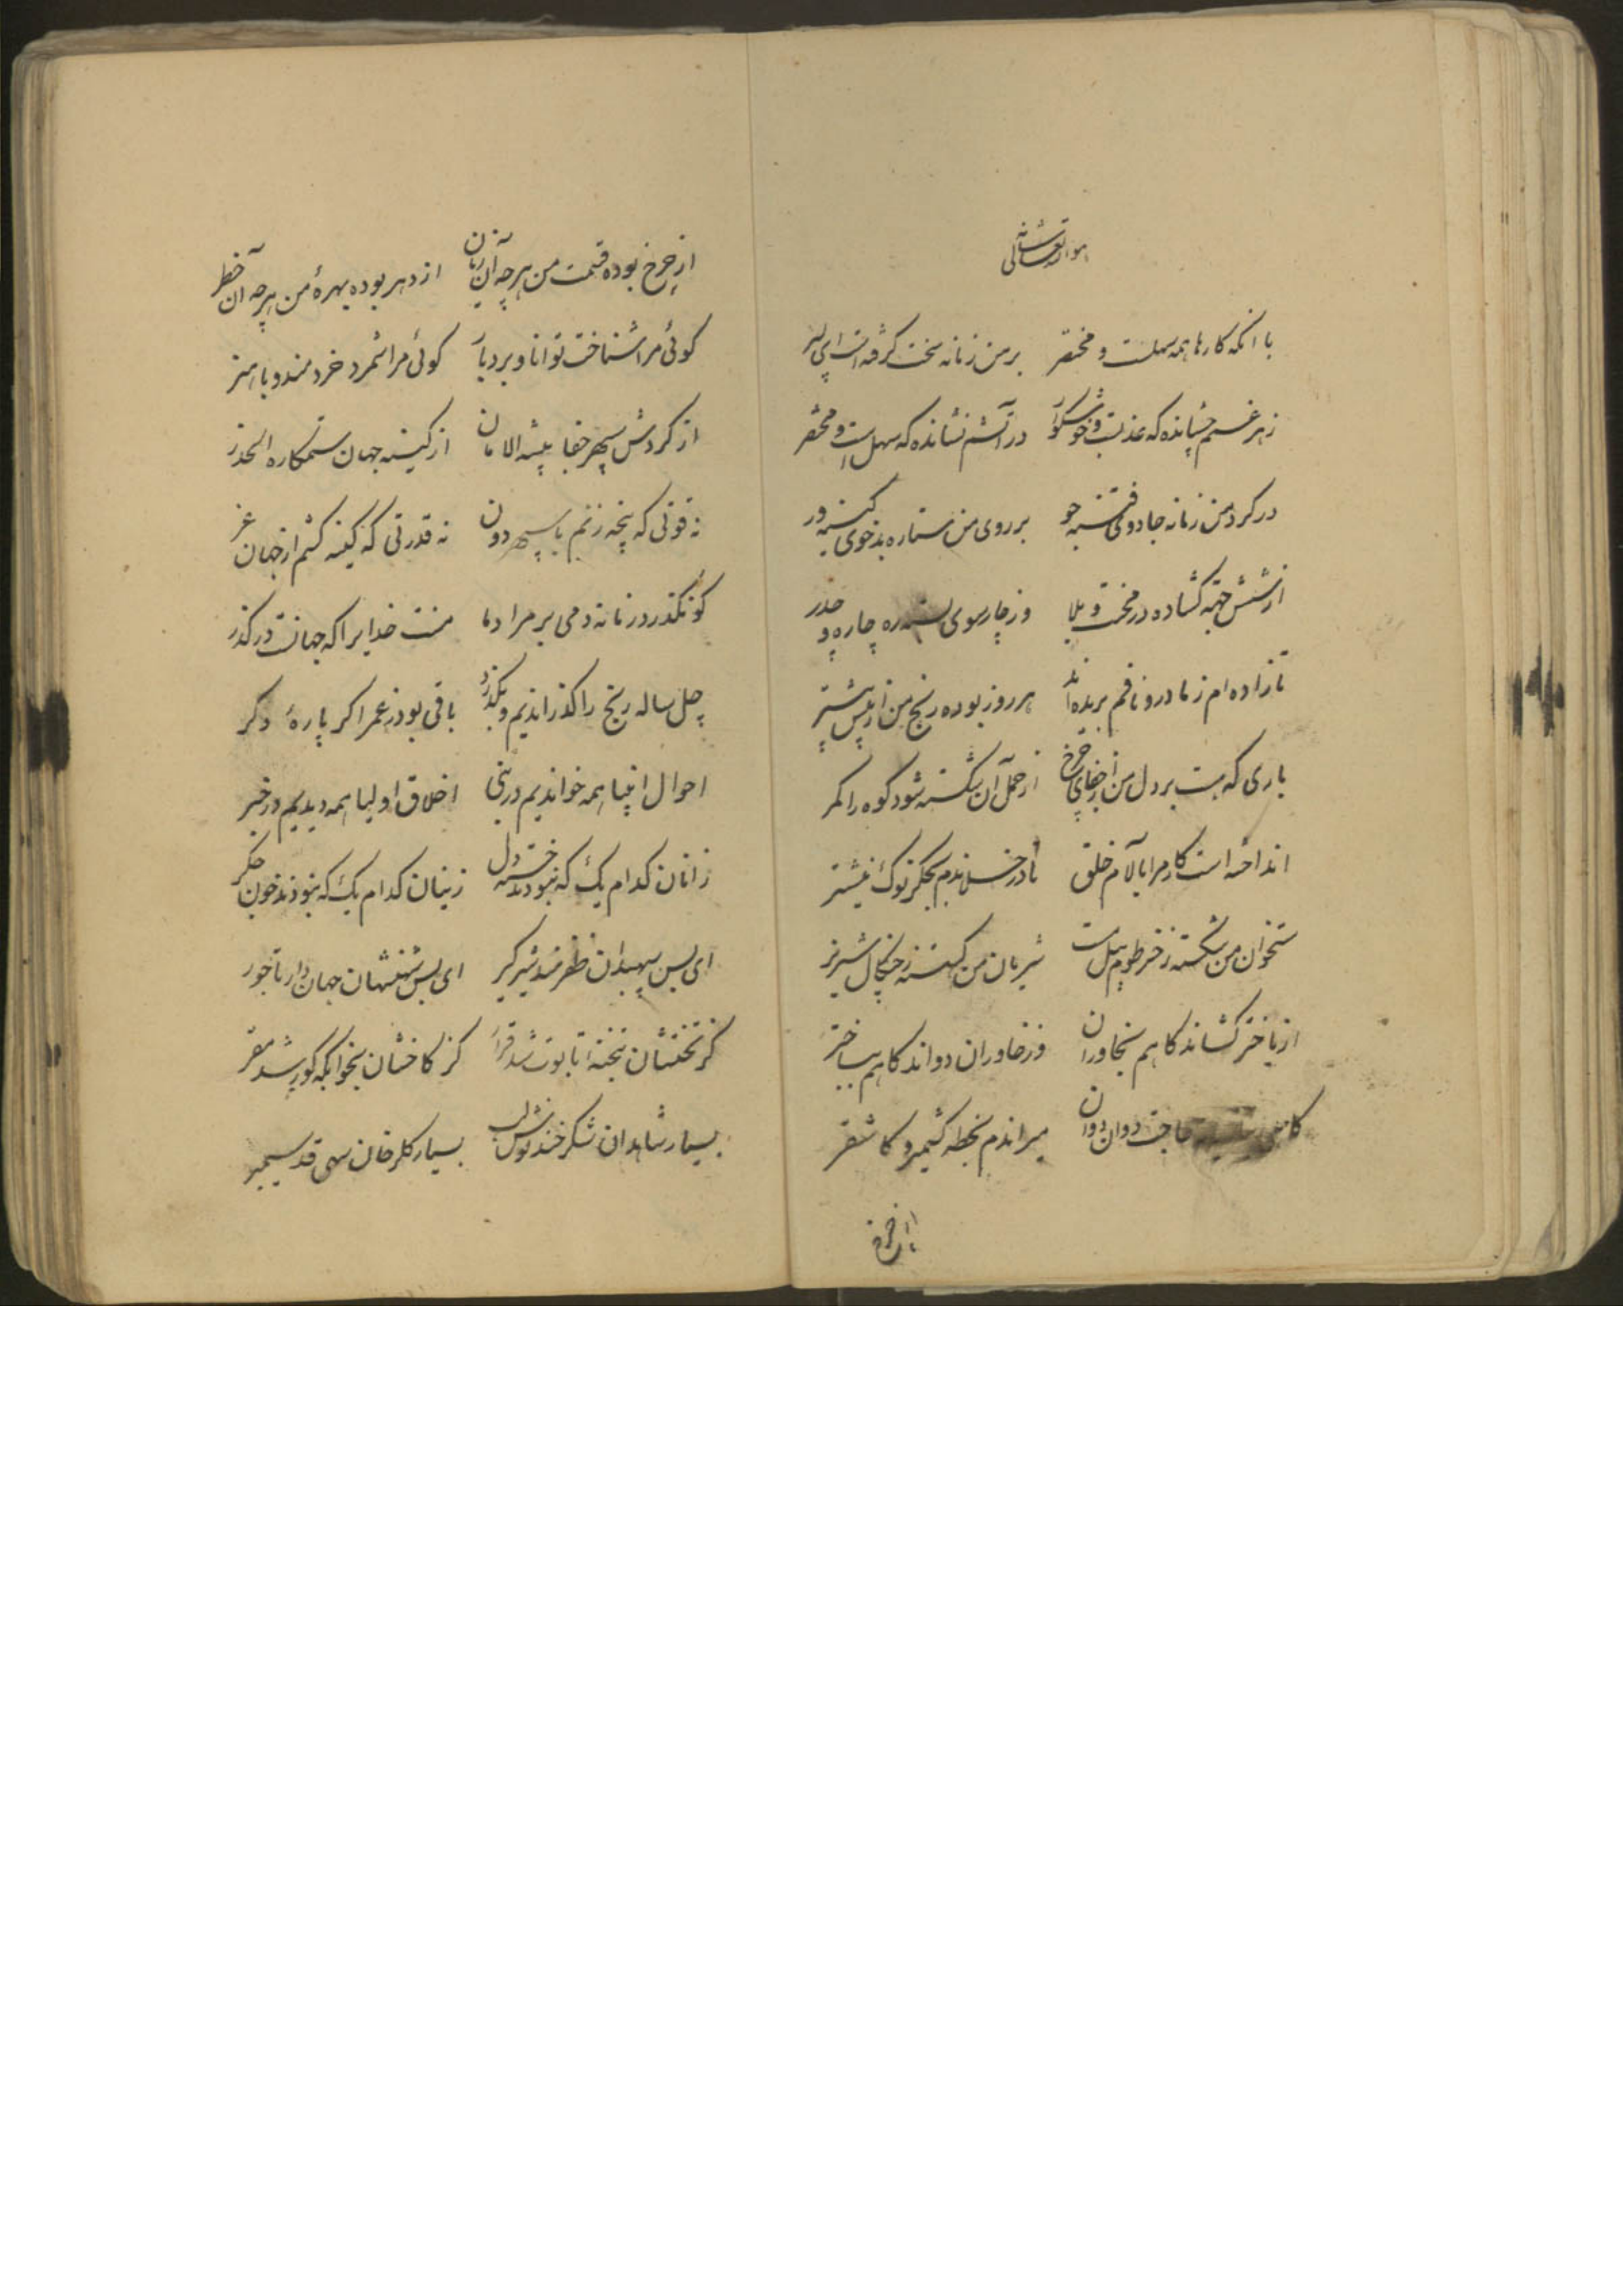 هو الله تعالی شانه
با آنکه کارها همه سهلست و مختصر بر من زمانه سخت گرفته است ای پسر
زهر غمم چشانده که عذبست و خوشگوار در آتشم نشانده که سهل است و مختصر
در کرد من زمانه جادوی فتنه جو بر روی من ستاره بدخوی کینه ور
از شش جهة کشاده در محنت و بلا وز چارسوی بسته ره چاره و حذر
تا زاده ام ز مادر و نافم بریده اند هر روز بوده رنج من از پیش پیشتر
باری که هست بر دل من از جفای چرخ از حمل آن شکسته شود کوه را کمر
انداخته است کار مرا با لآم خلق تا در خسلاندم بجگر نوک نیشتر
ستخوان من شکسته ز خرطوم پیل مست شریان من کسسته ز چنکال شیر نر
از باختر کشاند کاهم بخاوران وز خاوران دواند کاهم بباختر
حاجت دوان دوان میراندم بخطه کشمیر و کاشغر
از چرخ
از چرخ بوده قسمت من هر چه آن زیان از دهر بوده بهرهٔ من هر چه آن خطر
کوئی مرا شناخت توانا و بردبار کوئی مرا شمرد خردمند و با هنر
از کردش سپهر جفا پیشه الامان از کینه جهان ستمکاره الحذر
نه قوتی که پنجه زنم با سپهر دون نه قدرتی که کینه کشم از جهان غر
کو نکذرد زمانه دمی بر مراد ما منت خدایرا که جهانست در کذر
چل ساله رنج را کذراندیم و بکذرد باقی بود ز عمر اکر پارهٔ دکر
احوال انبیا همه خواندیم در نبی اخلاق اولیا همه دیدیم در خبر
زانان کدام یک که نبودند خسته دل زینان کدام یک که نبودند خون جکر
ای بس سپهبدان ظفرمند شیرکیر ای بس شهنشهان جهاندار تاجور
کز تختشان بتختهٔ تابوت شد قرار کز کاخشان بخوابکه کور شد مقر
بسیار شاهدان شکرخند نوش لب بسیار کلرخان سهی قد سیمبر